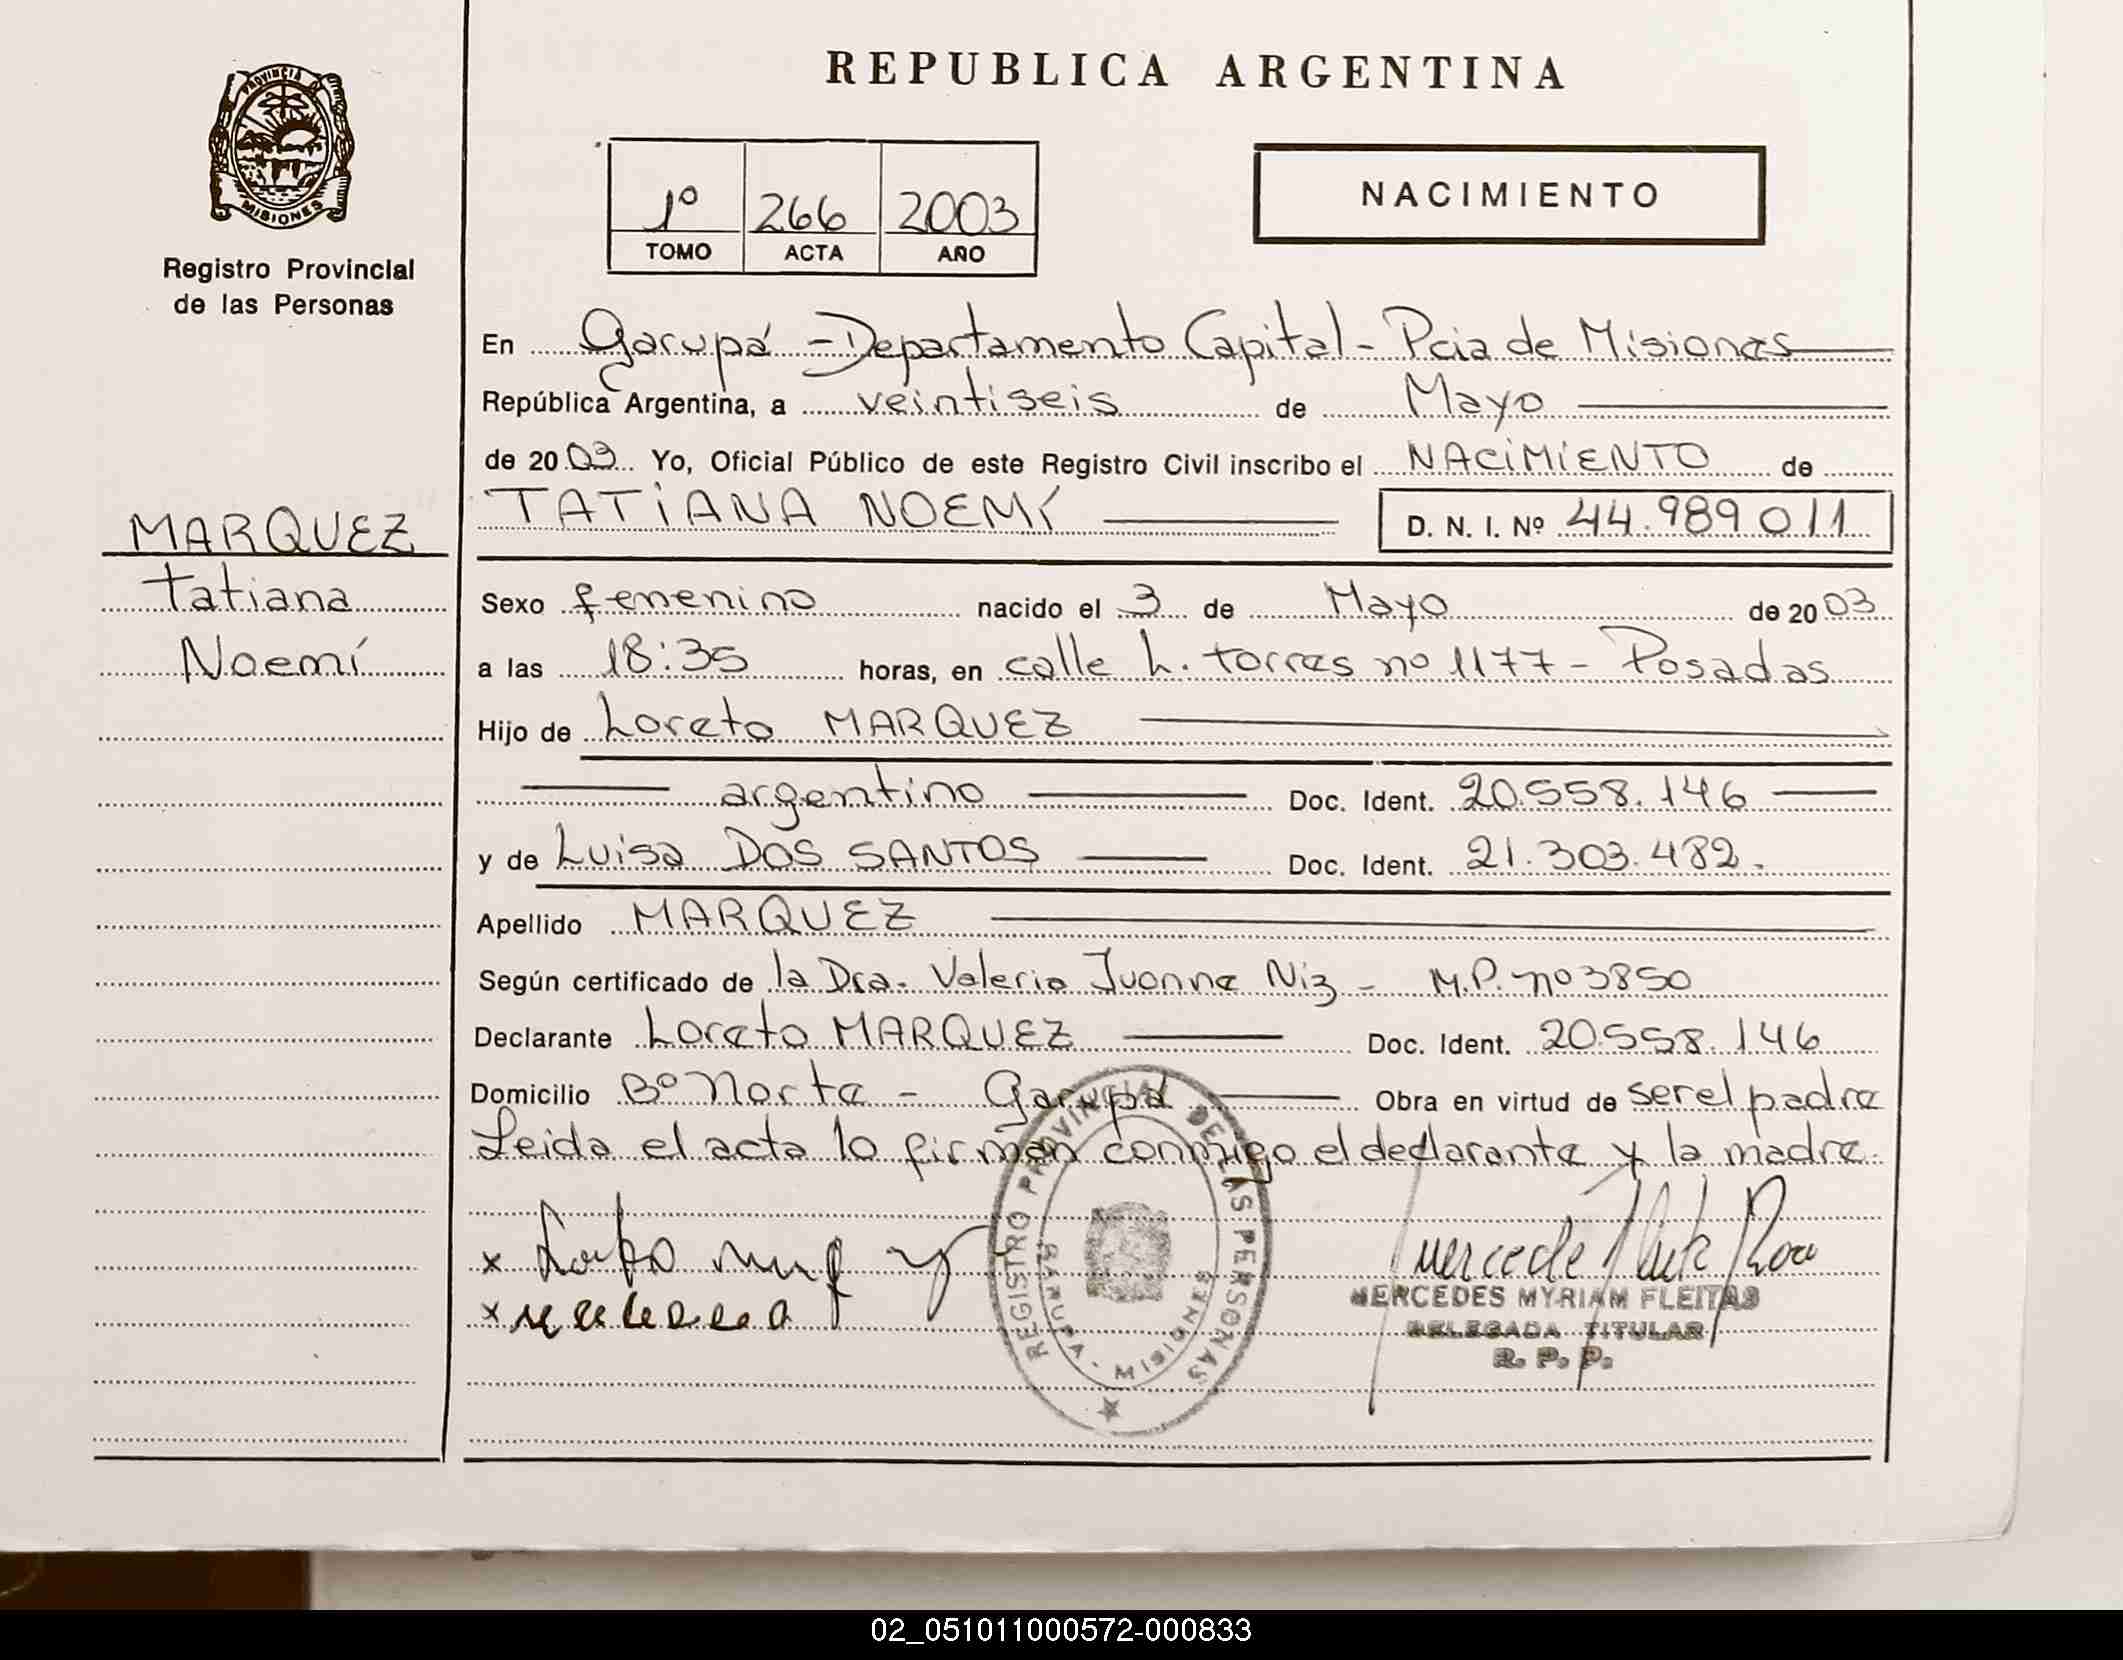 REPUBLICA ARGENTINA
PROVINCIA
MISIONES
Registro Provincial
de las Personas
1º 266 2003
TOMO ACTA AÑO
NACIMIENTO
En Garupá - Departamento Capital - Pcia de Misiones
República Argentina, a veintiseis de Mayo
de 2003 Yo, Oficial Público de este Registro Civil inscribo el NACIMIENTO de
TATIANA NOEMÍ D. N. I. Nº 44.989011
MARQUEZ
Tatiana
Noemí
Sexo femenino nacido el 3 de Mayo de 2003
a las 18:35 horas, en calle L. Torres nº 1177 - Posadas
Hijo de Loreto MARQUEZ
argentino Doc. Ident. 20.558.146
y de Luisa DOS SANTOS Doc. Ident. 21.303.482.
Apellido MARQUEZ
Según certificado de la Dra. Valeria Ivonne Niz - M.P. nº 3850
Declarante Loreto MARQUEZ Doc. Ident. 20.558.146
Domicilio Bº Norte - Garupá Obra en virtud de ser el padre
Leida el acta lo firman conmigo el declarante y la madre.
REGISTRO PROVINCIAL DE LAS PERSONAS
GARUPA - MISIONES
x
x
MERCEDES MYRIAM FLEITAS
DELEGADA TITULAR
R. P. P.
02_051011000572-000833